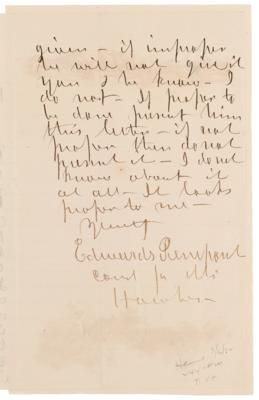 given – if improper
he will not give it
you & he know – I
do not – If proper to
be done present him
this letter – if not
proper then do not
present it – I do not
know about it
at all – It looks
proper to me –
Yours
Edwards Pierrepont
for Mr